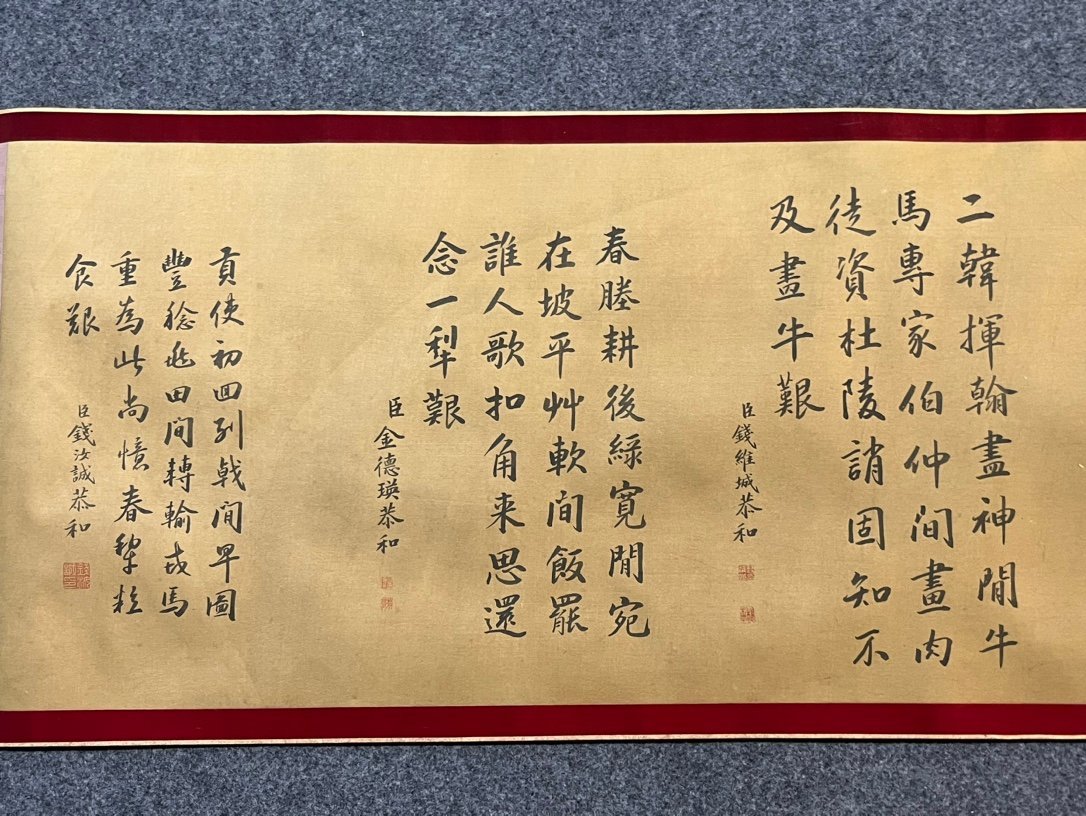 二韓揮翰盡神閒牛
馬專家伯仲間畫肉
徒資杜陵誚固知不
及畫牛艱
臣錢維城恭和
春塍耕後綠寬閒宛
在坡平艸軟間飯罷
誰人歌扣角来思還
念一犁艱
臣金德瑛恭和
貢使初回列戟間早圖
豐稔逃田間轉輸戎馬
重為此尚憶春犂粒
食艱
臣錢汝誠恭和